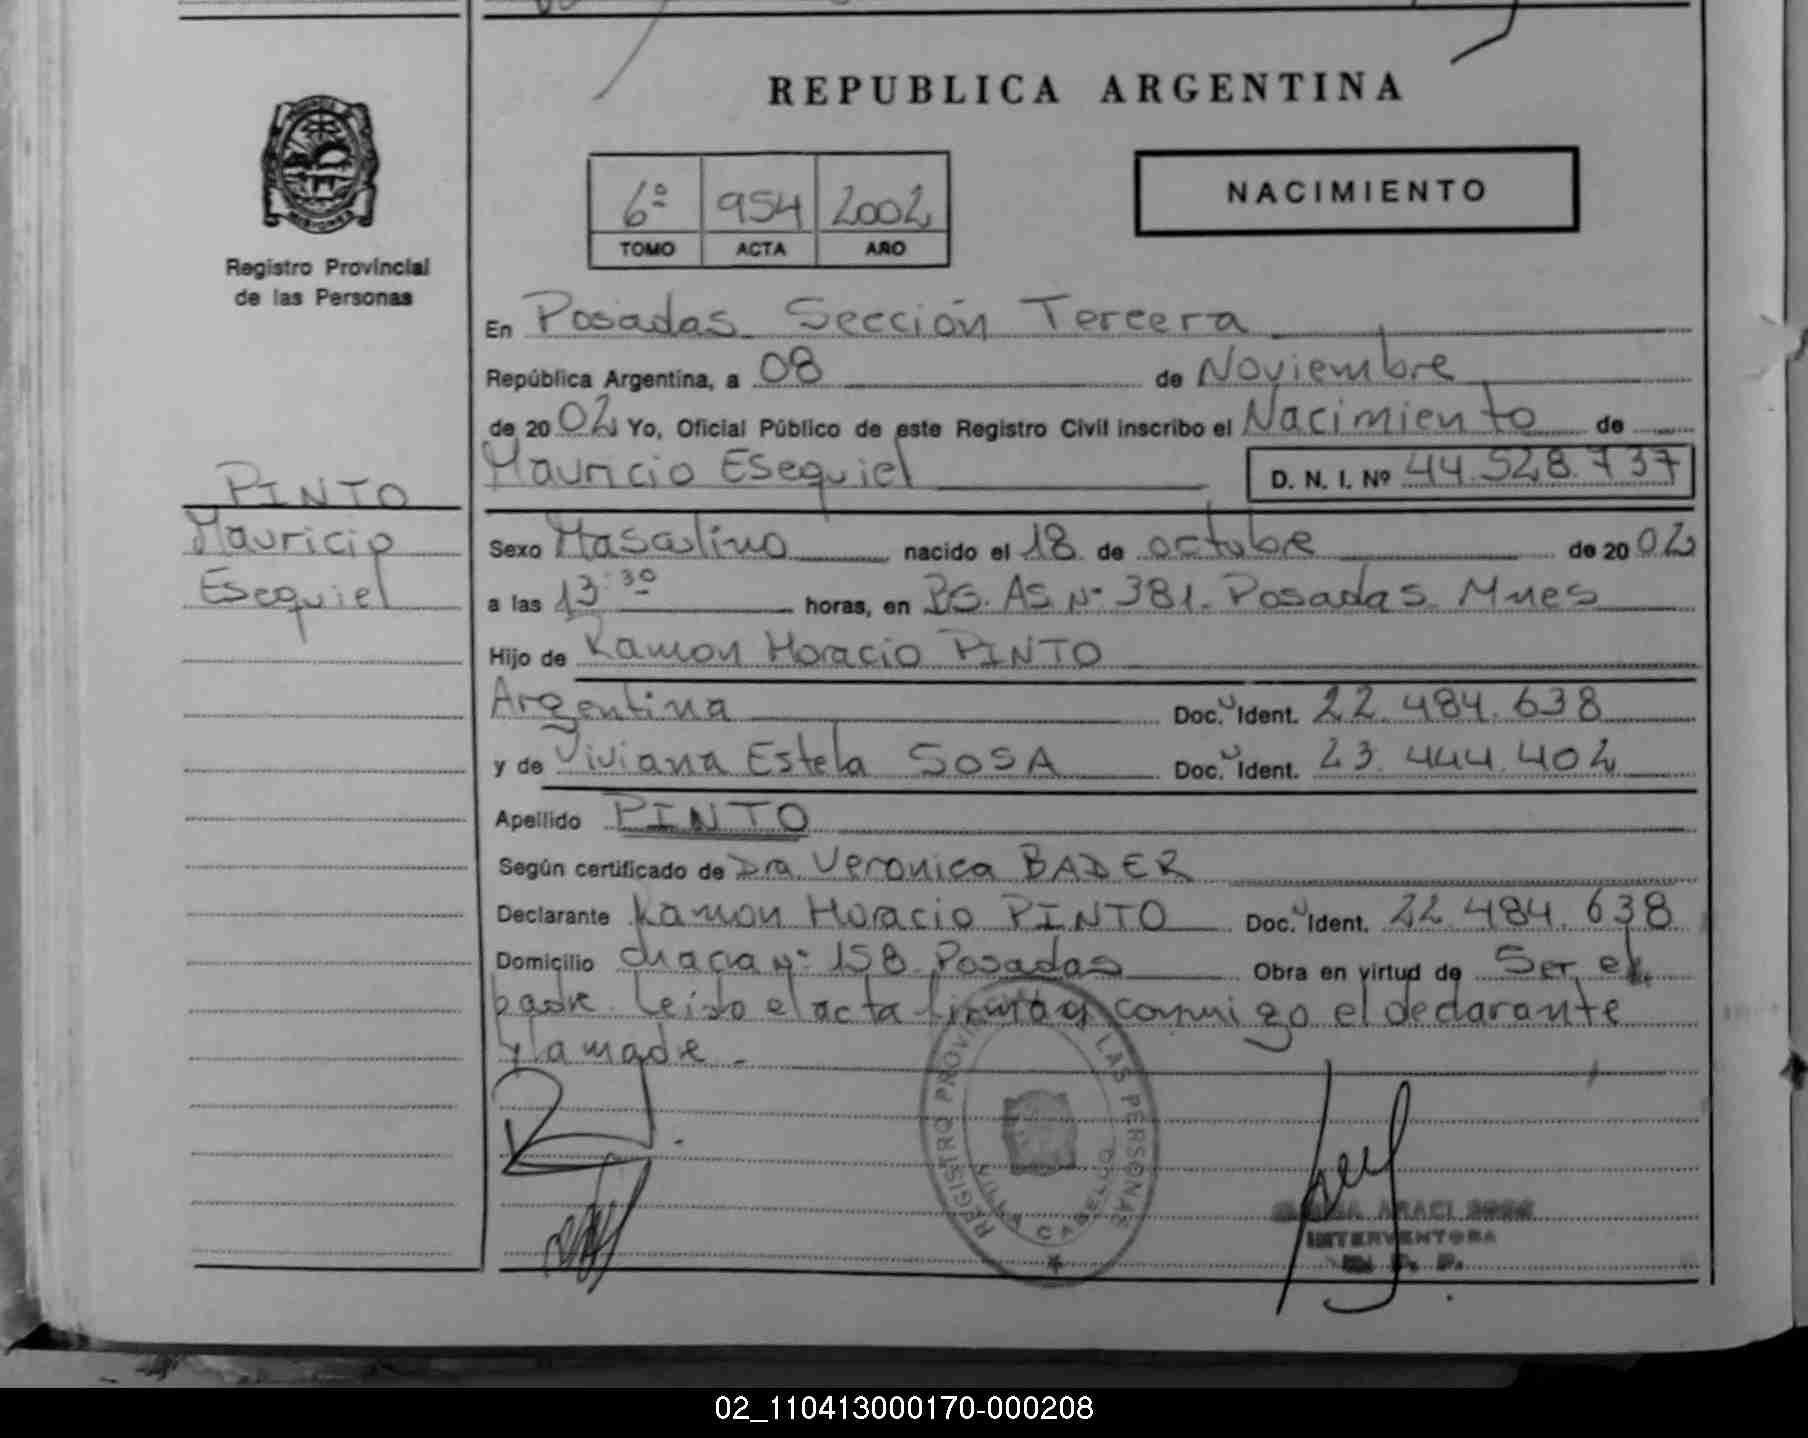 REPUBLICA ARGENTINA
6º 954 2002
TOMO ACTA AÑO
NACIMIENTO
Registro Provincial
de las Personas
En Posadas Sección Tercera
República Argentina, a 08 de Noviembre
de 2002 Yo, Oficial Público de este Registro Civil inscribo el Nacimiento de
Mauricio Esequiel D. N. I. Nº 44.528.737
PINTO
Mauricio
Esequiel
Sexo Masculino nacido el 18 de octubre de 2002
a las 13:30 horas, en BS. AS Nº 381. Posadas Mnes
Hijo de Ramon Horacio PINTO
Argentina Doc. Ident. 22.484.638
y de Viviana Estela SOSA Doc. Ident. 23.444.402
Apellido PINTO
Según certificado de Dra. Veronica BADER
Declarante Ramon Horacio PINTO Doc. Ident. 22.484.638
Domicilio chacra Nº 158 Posadas Obra en virtud de Ser el
padre. Leido el acta firman conmigo el declarante
y la madre.-
REGISTRO PROVINCIAL LAS PERSONAS
VILLA CABELLO
ARACI
INTERVENTORA
R. P. P.
02_110413000170-000208